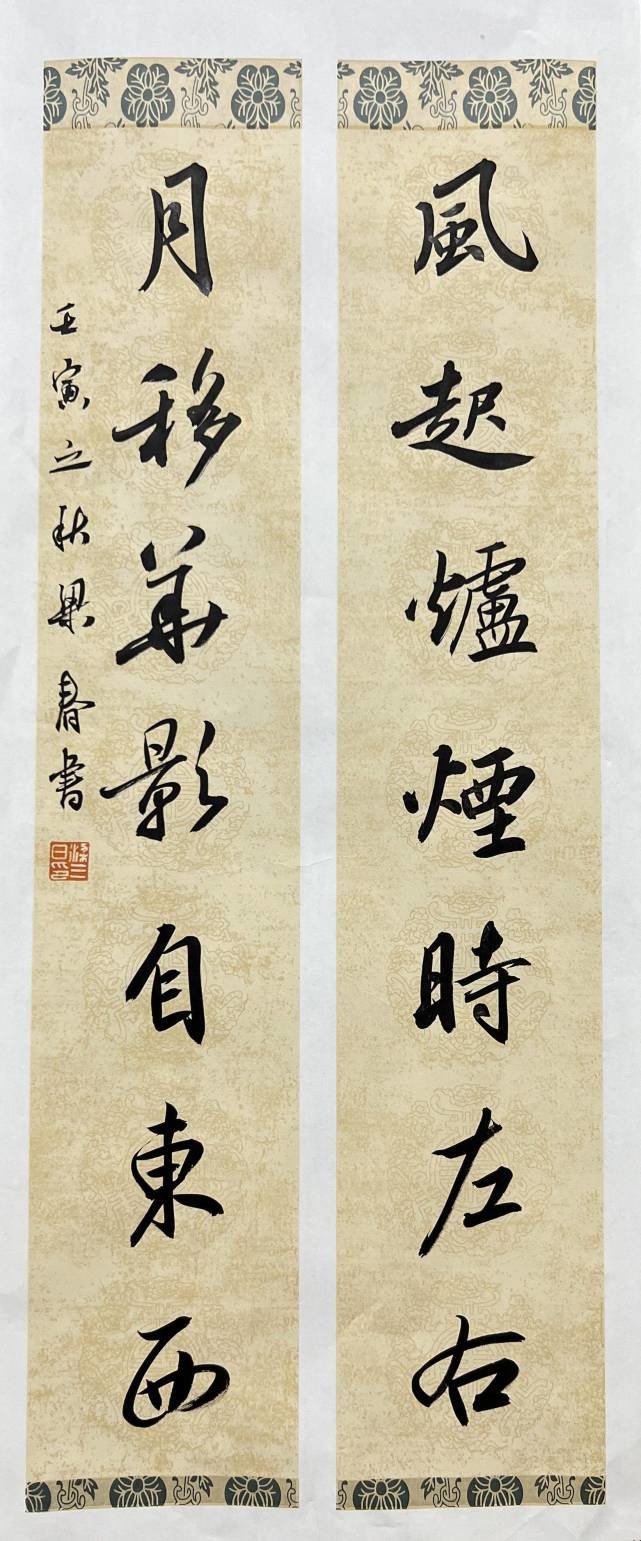 風起爐煙時左右
月移華影自東西
壬寅之秋梁春書